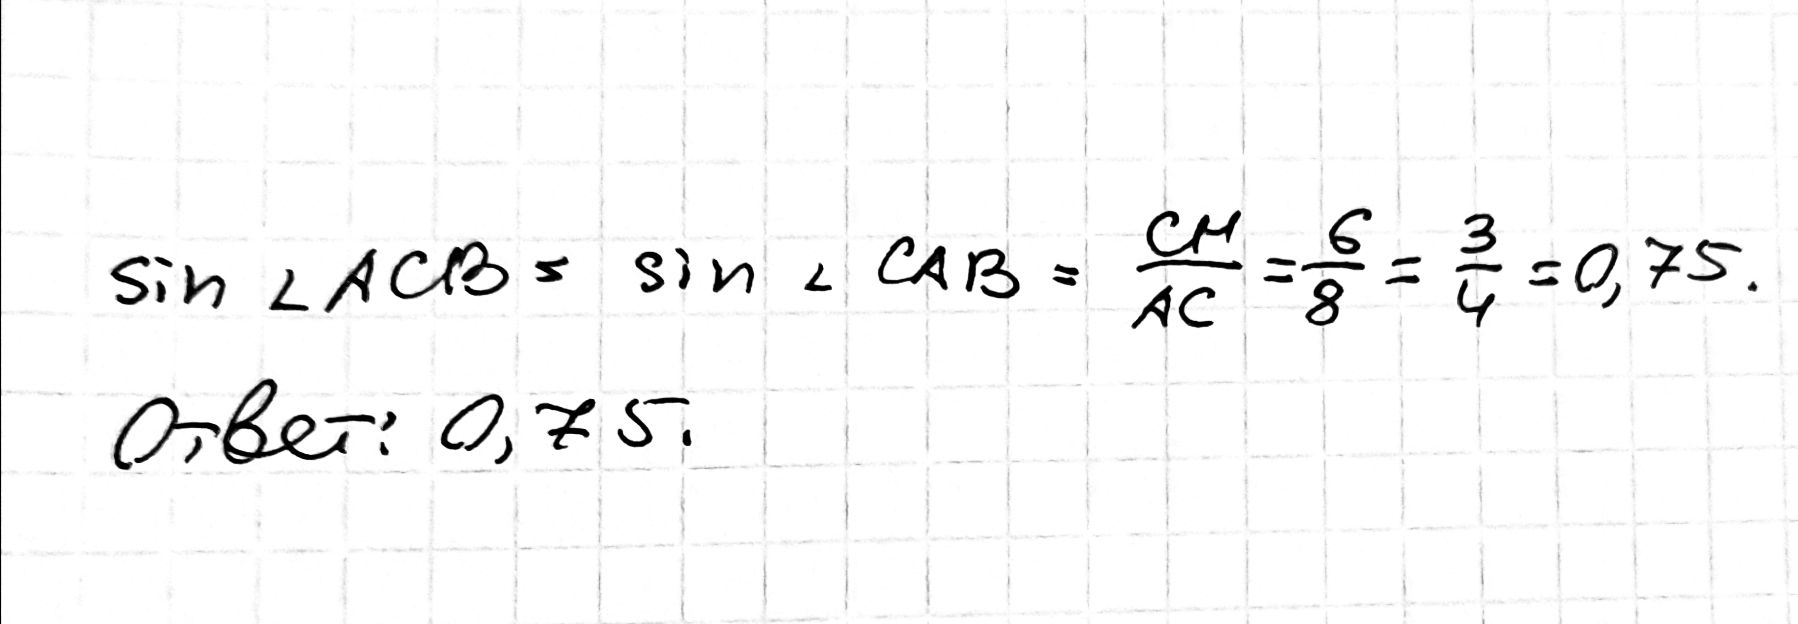 sin ∠ ACB = sin ∠ CAB = CH/AC = 6/8 = 3/4 = 0,75.
Ответ: 0,75.